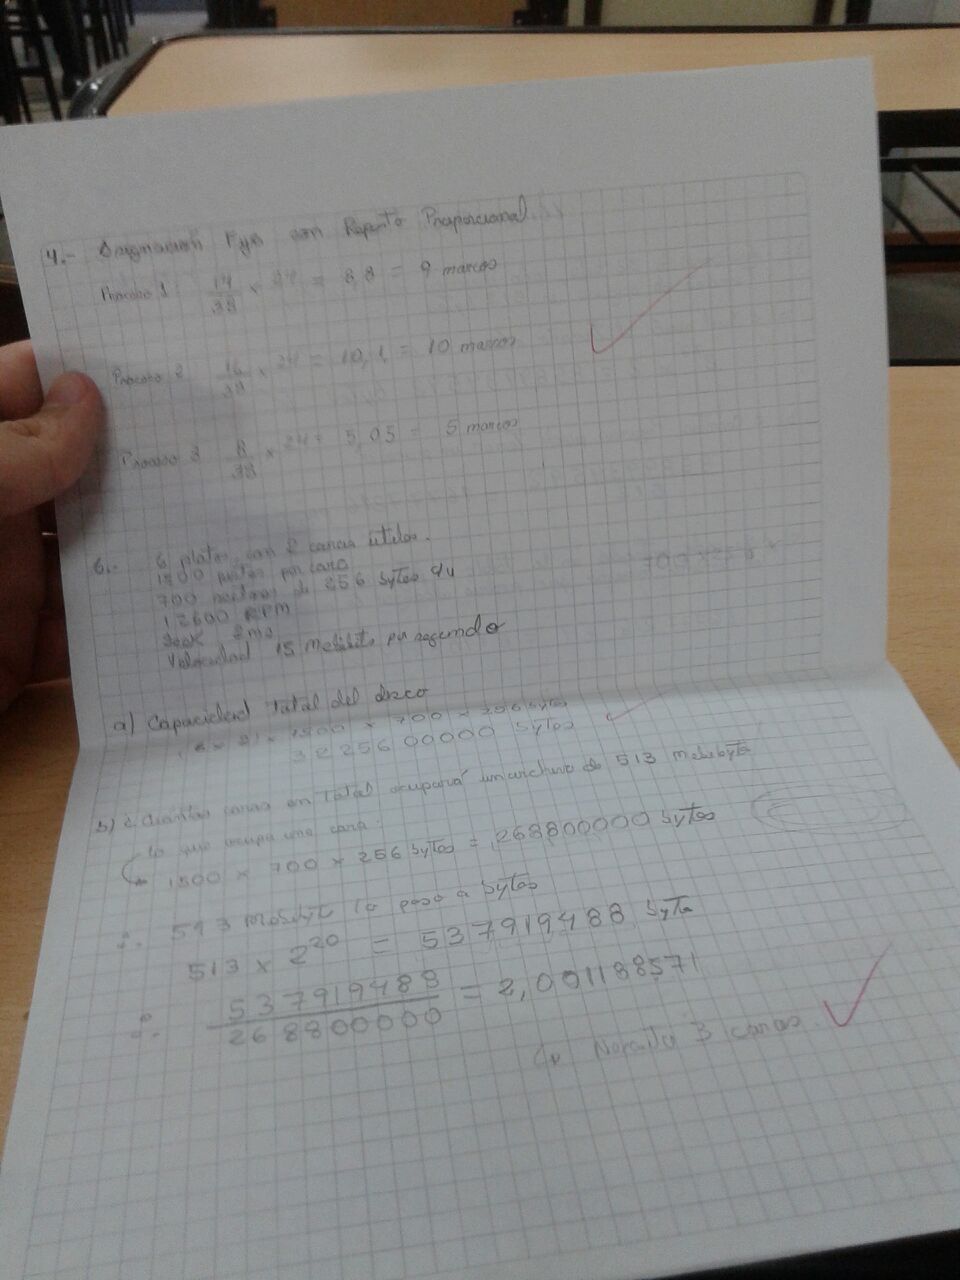 4.- Asignación Fija con Reparto Proporcional
Proceso 1 14/38 x 24 = 8,8 = 9 marcos
Proceso 2 16/38 x 24 = 10,1 = 10 marcos
Proceso 3 8/38 x 24 = 5,05 = 5 marcos
6.- 6 platos con 2 caras útiles.
1500 pistas por cara
700 sectores de 256 bytes c/u
12600 RPM
Seek 8ms
Velocidad 15 Mebibits por segundo
a) Capacidad total del disco
(6 x 2) x 1500 x 700 x 256 bytes
3225600000 bytes
b) ¿Cuántas caras en total ocupará un archivo de 513 Mebibyte
lo que ocupa una cara:
1500 x 700 x 256 bytes = 268800000 bytes
∴ 513 Mebibyt lo paso a bytes
513 x 2^20 = 537919488 byte
∴ 537919488/268800000 = 2,001188571
Necesito 3 caras